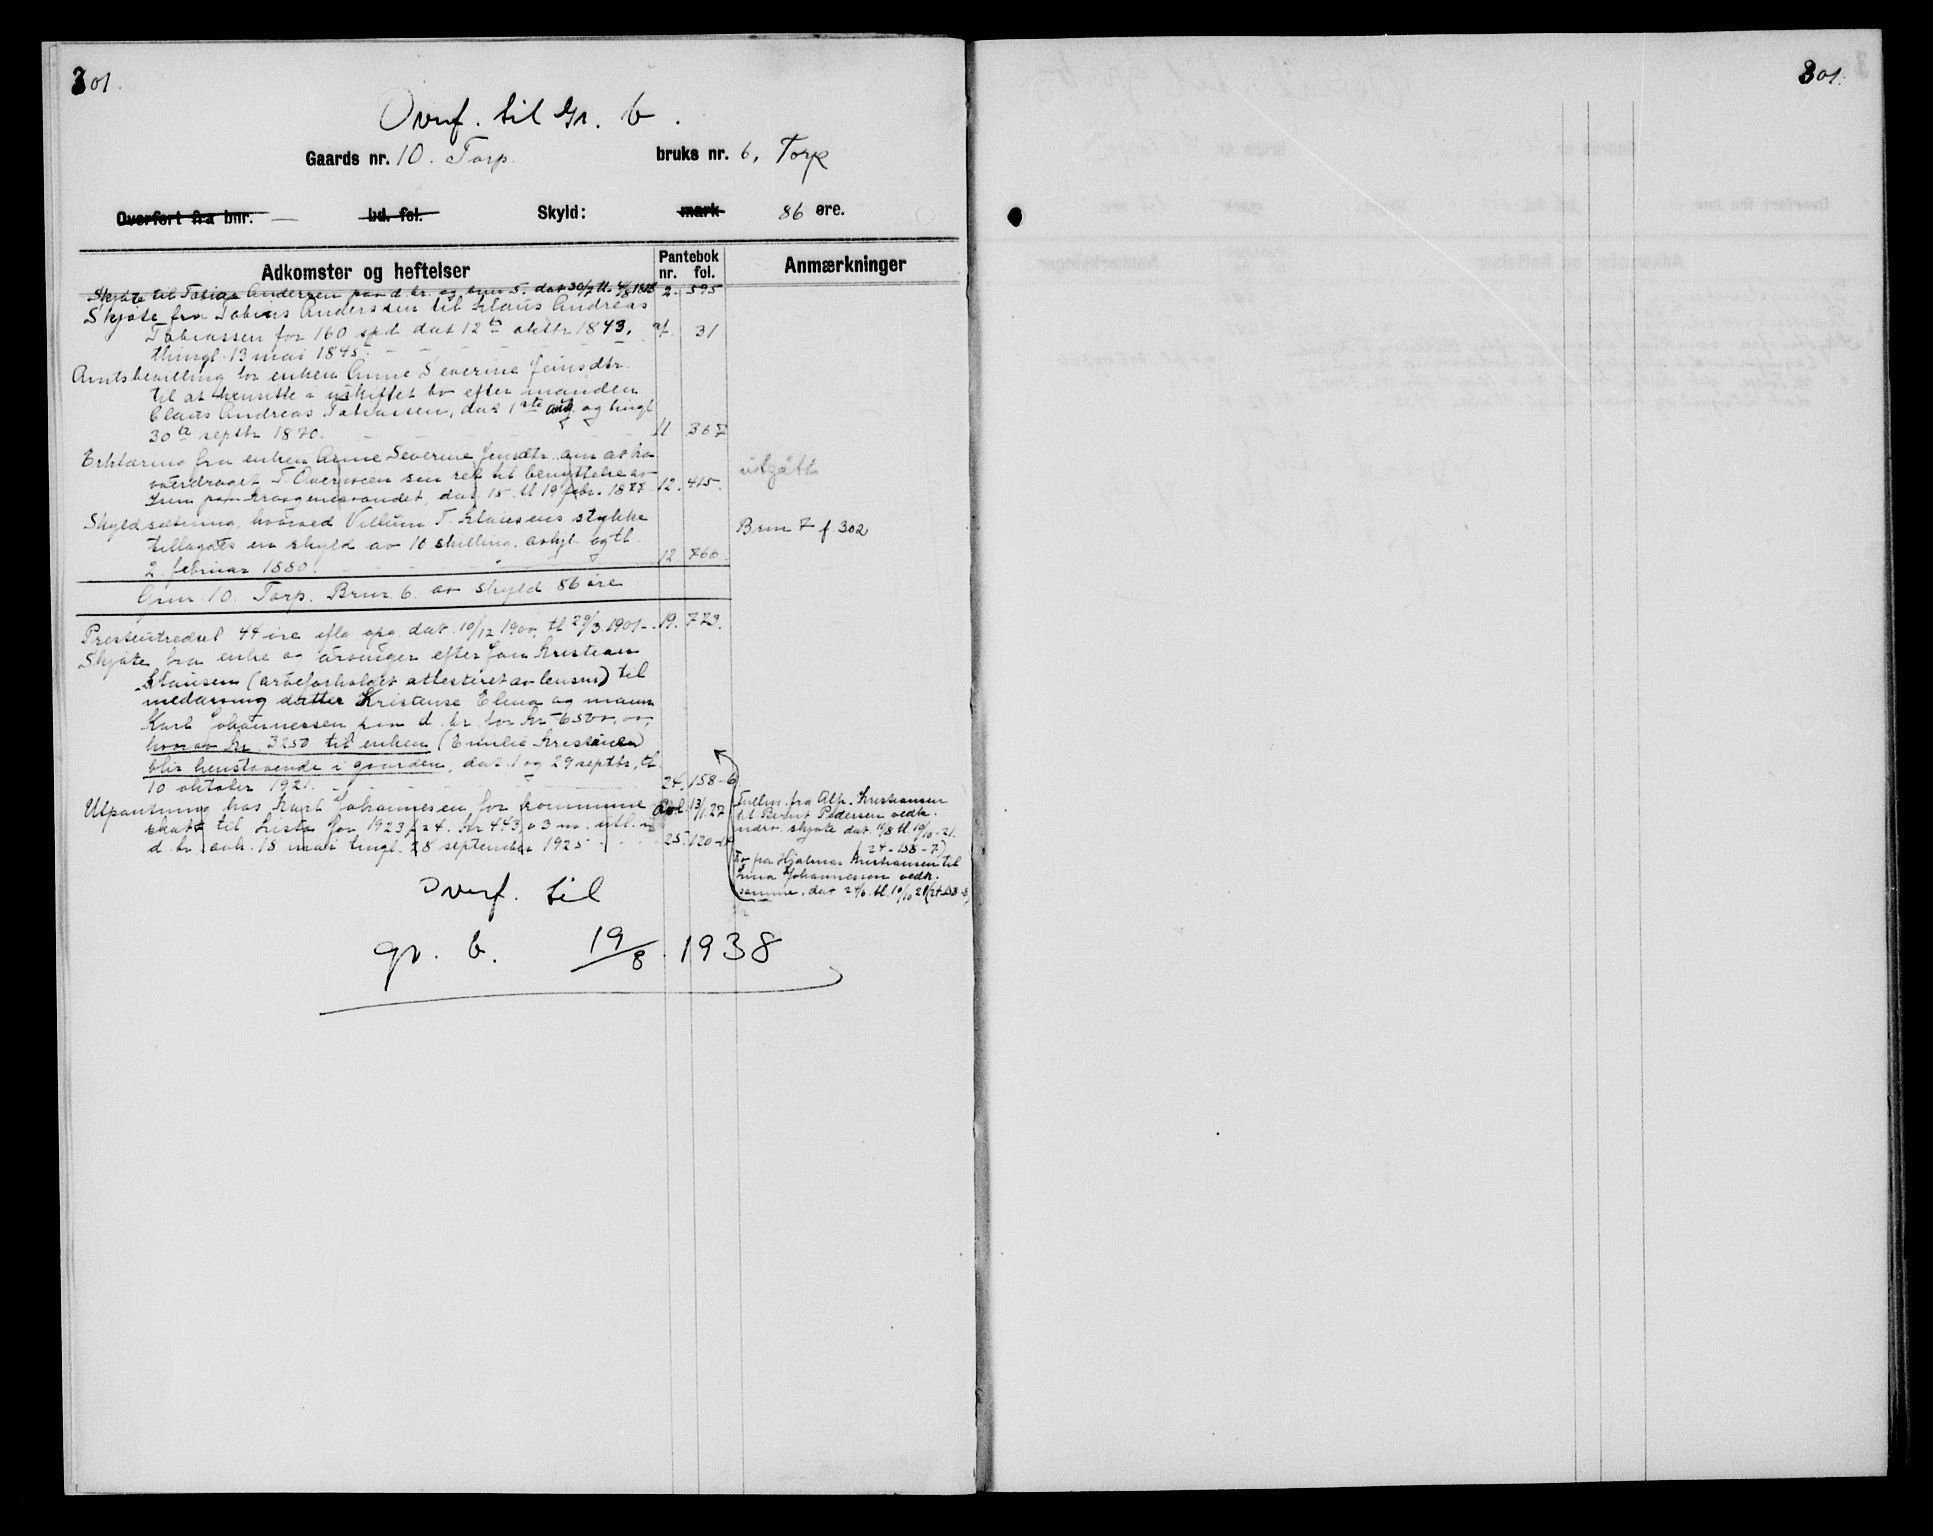 301.
301.
Overf. til Gr. b.
Gaards nr. 10. Torp. bruks nr. 6, Torp
Overført fra bnr. — bd. fol. Skyld: mark 86 øre.
Adkomster og heftelser Pantebok nr. fol. Anmærkninger
Skjøte til Tobias Andersen paa d. br. og bnr 5. dat 30/7 tl. 4/8 2. 595
Skjøte fra Tobias Andersen til Klaus Andreas
Tobiassen for 160 spd dat 12te oktbr 1843,
thingl. 13 mai 1845. 31
Amtsbevilling for enken Anne Severine Jensdtr.
til at hensitte i uskiftet bo efter manden
Claus Andreas Tobiassen, dat 1ste aug. og tingl
30te septbr 1870. 11 367
Erklæring fra enken Anne Severine Jensdtr. om at ha
overdraget T. sin ret til benyttelse av
dat. 15. tl 19 febr. 1877 12. 415.
utgått
Skyldsætning, hvorved Villum T. Klausens stykke
tillagdes en skyld av 10 skilling. avhjl. og tl.
2 februar 1880. 12 766.
Brnr 7 f 302
Gnr. 10. Torp. Brnr. 6. av skyld 86 øre
Presteutredsel 44 øre iflg. opg. dat. 10/12 1900, tl 29/3 1901 - 19. 773.
Skjøte fra enke og arvinger efter Jon Kristian
Klausen (arveforholdet attesteret av lensm) til
medarving datter Kristense Elena og mann
Karl Johannessen paa d. br. for kr 6500,00,
hvorav kr. 3250 til enken (Emilie Kristine)
blir henstaaende i gaarden, dat. 1 og 29 septbr, tl.
10 oktober 1921. 24. 158-6
Utpantning hos Karl Johannesen for kommune
skatt til Lista for 1923/24. kr 443, 3 m. utl. i
d. br. avh. 18 mai tingl. 28 september 1925 25. 120
Avl. 13/1.27
Fullm. fra Alfr. Kristiansen
til Bernt Pedersen vedk.
ndrv. skjøte dat. 11/8 tl 10/10-21.
(24-158-7)
Do fra Hjalmar Kristiansen til
Lina Johannessen vedk.
samme, dat 24/6. tl. 10/10 21 (24-158-8)
Overf. til
gr. b. 19/8. 1938